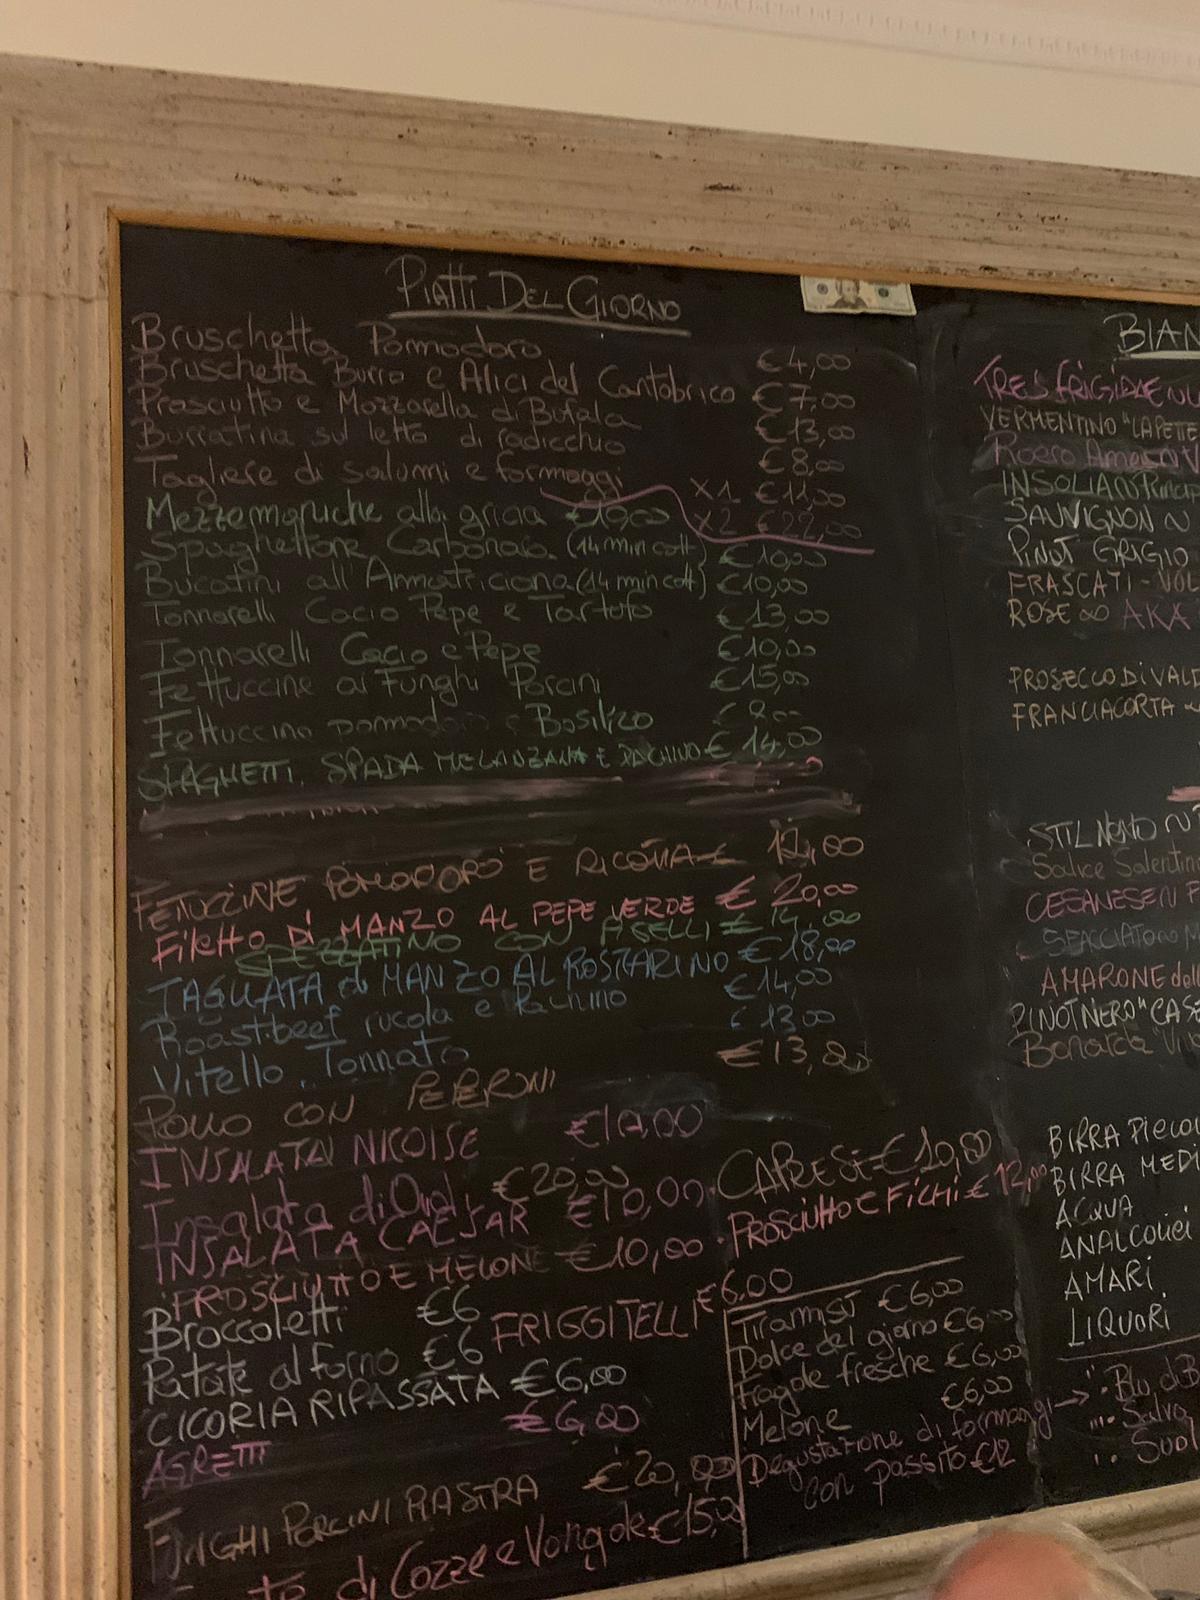 PIATTI DEL GIORNO
Bruschetta Pomodoro €4,00
Bruschetta Burro e Alici del Cantabrico €7,00
Prosciutto e Mozzarella di Bufala €13,00
Burratina sul letto di radicchio €8,00
Tagliere di salumi e formaggi x1 €11,00
x2 €22,00
Mezzemaniche alla gricia €10,00
Spaghettone Carbonara (14 min cott) €10,00
Bucatini all'Amatriciana (14 min cott) €10,00
Tonnarelli Cacio Pepe e Tartufo €13,00
Tonnarelli Cacio e Pepe €10,00
Fettuccine ai Funghi Porcini €15,00
Fettuccine pomodoro e Basilico
SPAGHETTI SPADA MELANZANA E PACHINO € 14,00
FETTUCCINE POMODORO E RICOTTA
FILETTO DI MANZO AL PEPE VERDE € 20,00
SPEZZATINO CON PISELLI € 14,00
TAGLIATA di MANZO AL ROSMARINO €18,00
Roastbeef rucola e Pachino €14,00
Vitello Tonnato € 13,00
POLLO CON PEPERONI €13,00
INSALATA NICOISE €10,00
Insalata di €20,00
INSALATA CAESAR €10,00
PROSCIUTTO E MELONE €10,00
Broccoletti €6
FRIGGITELLI €6.00
Patate al forno €6
CICORIA RIPASSATA €6,00
AGRETTI €6,00
FUNGHI PORCINI PIASTRA €20,00
di Cozze e Vongole €15,00
CAPRESE €10,00
PROSCIUTTO E FICHI € 12,00
Tiramisù €6,00
Dolce del giorno €6,00
Fragole fresche €6,00
Melone €6,00
Degustazione di formaggi →
con passito €12
BIAN
VERMENTINO
Roero
SAUVIGNON
PINOT GRIGIO
FRASCATI - VOL
ROSE AKA
PROSECCO Di VALD
FRANCIACORTA
Salice Salentin
CESANESE
AMARONE dell
PINOT NERO "CASE
Bonarda
BIRRA PICCOL
BIRRA MEDI
ACQUA
ANALCOLICI
AMARI
LIQUORI
Blu di B
Salva